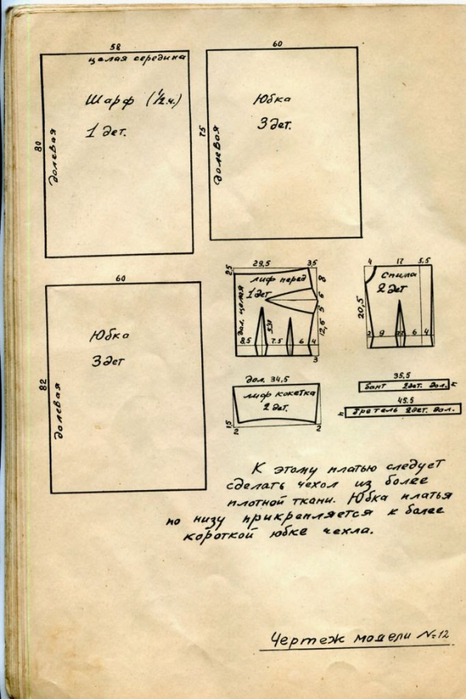 58
целая середина
Шарф (½ ч.)
1 дет.
80
долевая
60
Юбка
3 дет.
75
долевая
60
Юбка
3 дет
82
долевая
29,5 3,5
2,5
лиф перед
1 дет
дол. целая
8
6
5
12,5
8,5 7.5 6 4
3
4 17 5,5
Спинка
2 дет.
20,5
9 6 4
дол 34,5
лиф кокетка
2 дет.
15
2
35,5
бант 2 дет. дол.
45.5
бретель 2 дет. дол.
К этому платью следует
сделать чехол из более
плотной ткани. Юбка платья
по низу прикрепляется к более
короткой юбке чехла.
Чертеж модели №12